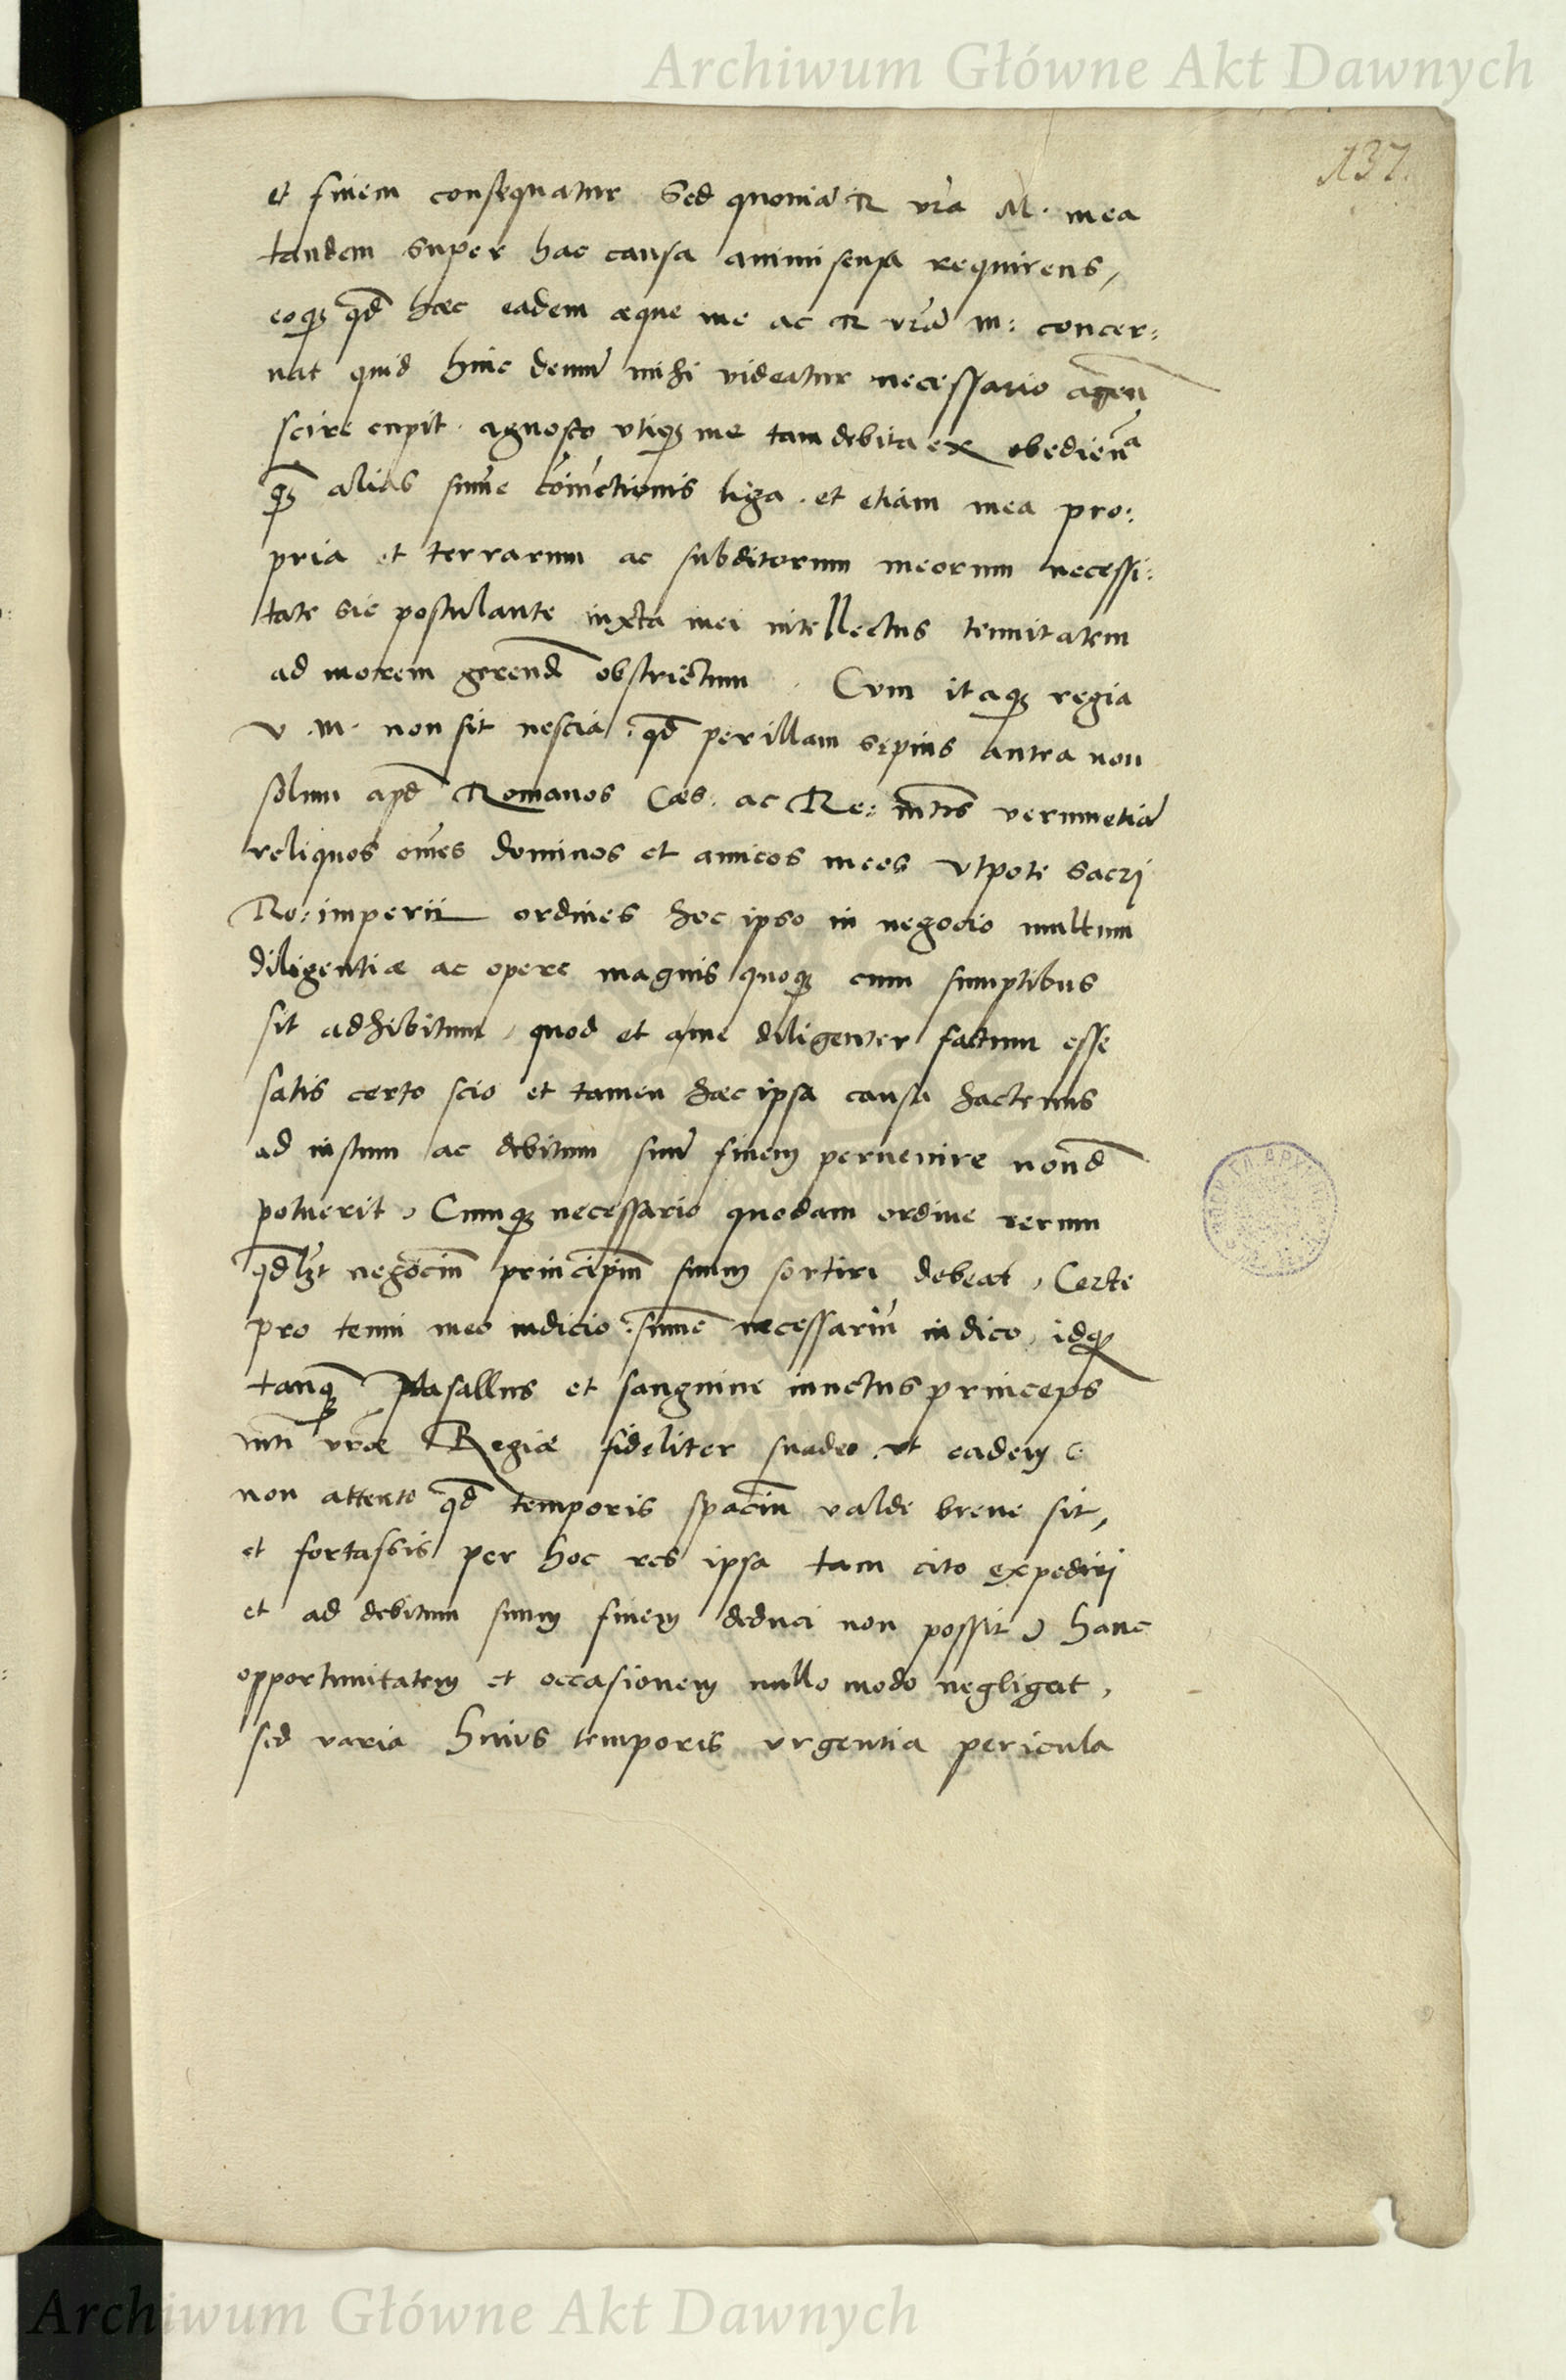 Archiwum Główne Akt Dawnych
137.
et finem consequatur Sed quoniā R vr̄a M. mea
tandem super hac causa animi sensa requirens,
eoqȝ qd̄ hæc eadem æque me ac R vrā m: concer:
nat quid hinc demū mihi videatur necessario agen̄
scire cupit. agnosco vtiqȝ me tam debita ex obedien̄a
qȝ̄ alias summe cōiūctionis liga. et etiam mea pro:
pria et terrarum ac subditorum meorum necessi:
tate sic postulante iuxta mei intellectus tenuitatem
ad morem gerend̄ obstrictum. Cum itaqȝ regia
v. m. non sit nescia: qd̄ per illam sępius antea non
solum apd̄ Romanos Cæs. ac Re: mtēs verumetiā
reliquos om̄es dominos et amicos meos vtpote sacri
Ro: imperii ordines hoc ipso in negocio multum
diligentiæ ac operę magnis quoqȝ cum sumptibus
sit adhibitum, quod et a me diligenter factum esse
satis certo scio et tamen hæc ipsa causa hactenus
ad iustum ac debitum suū finem peruenire nond̄
potuerit, Cumqȝ necessario quodam ordine rerum
qd̄lȝt negociū principiū suum sortiri debeat, Certe
pro tenui meo iudicio: summē necessariū iudico, idqȝ
tanqȝ Vasallus et sanguine iunctus princeps
mti vrǣ Regiæ fideliter suadeo vt eadem (:
non attento qd̄ temporis spaciū valde breue sit,
et fortassis per hoc res ipsa tam cito expediri
et ad debitum suum finem deduci non possit :) hanc
opportunitatem et occasionem nullo modo negligat,
sed varia huius temporis vrgentia pericula
Archiwum Główne Akt Dawnych